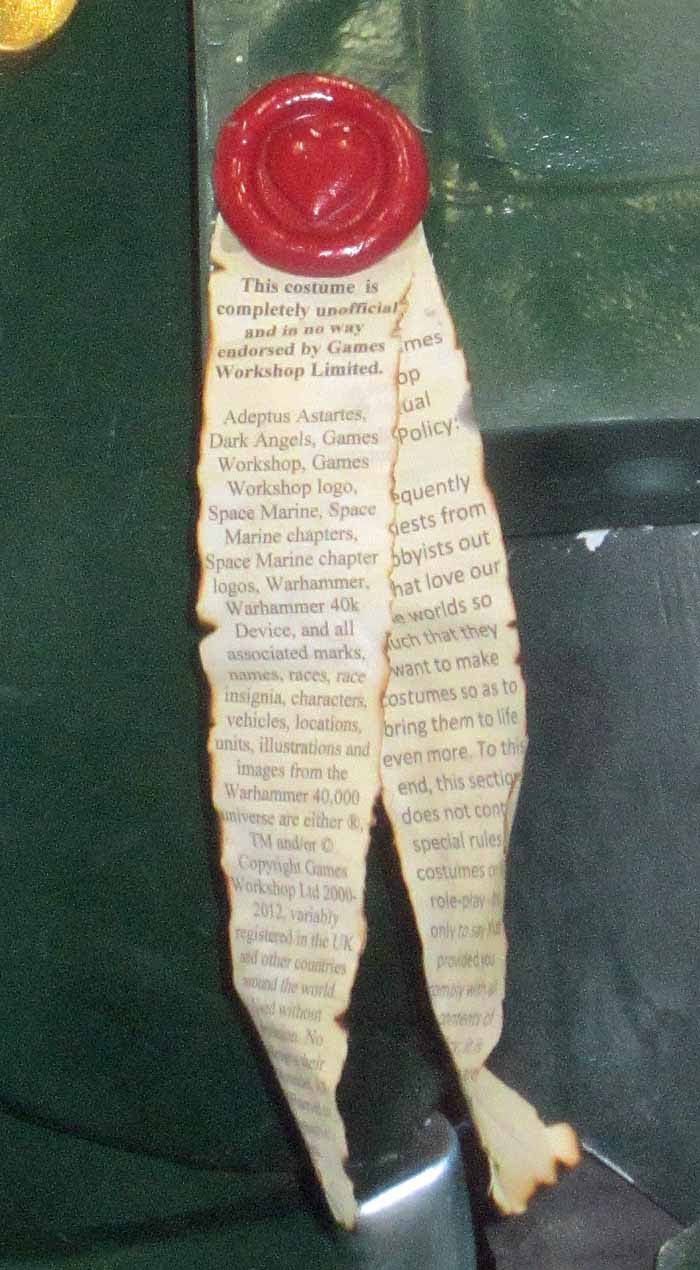 This costume is
completely unofficial
and in no way
endorsed by Games
Workshop Limited.
Adeptus Astartes,
Dark Angels, Games
Workshop, Games
Workshop logo,
Space Marine, Space
Marine chapters,
Space Marine chapter
logos, Warhammer,
Warhammer 40k
Device, and all
associated marks,
names, races, race
insignia, characters,
vehicles, locations,
units, illustrations and
images from the
Warhammer 40,000
universe are either ®,
TM and/or ©
Copyright Games
Workshop Ltd 2000-
2012, variably
registered in the UK
and other countries
around the world.
without
No
mes
op
ual
Policy:
equently
ests from
bbyists out
hat love our
worlds so
uch that they
want to make
costumes so as to
bring them to life
even more. To this
end, this section
does not cont
special rules
costumes
role-play
only to say
provided you
comply with
contents of